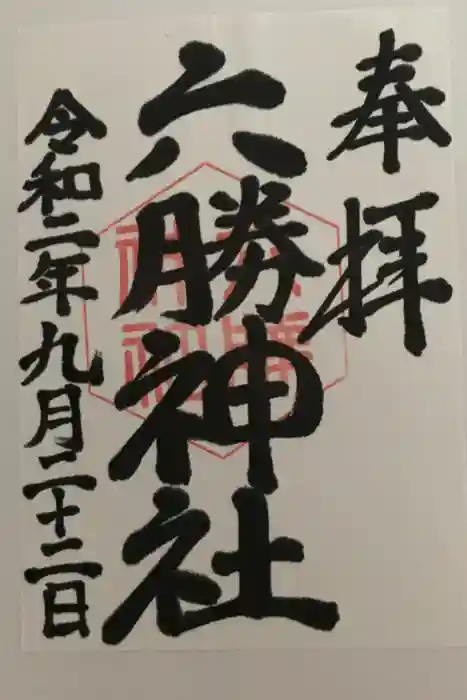 奉拝
六勝神社
令和二年九月二十二日